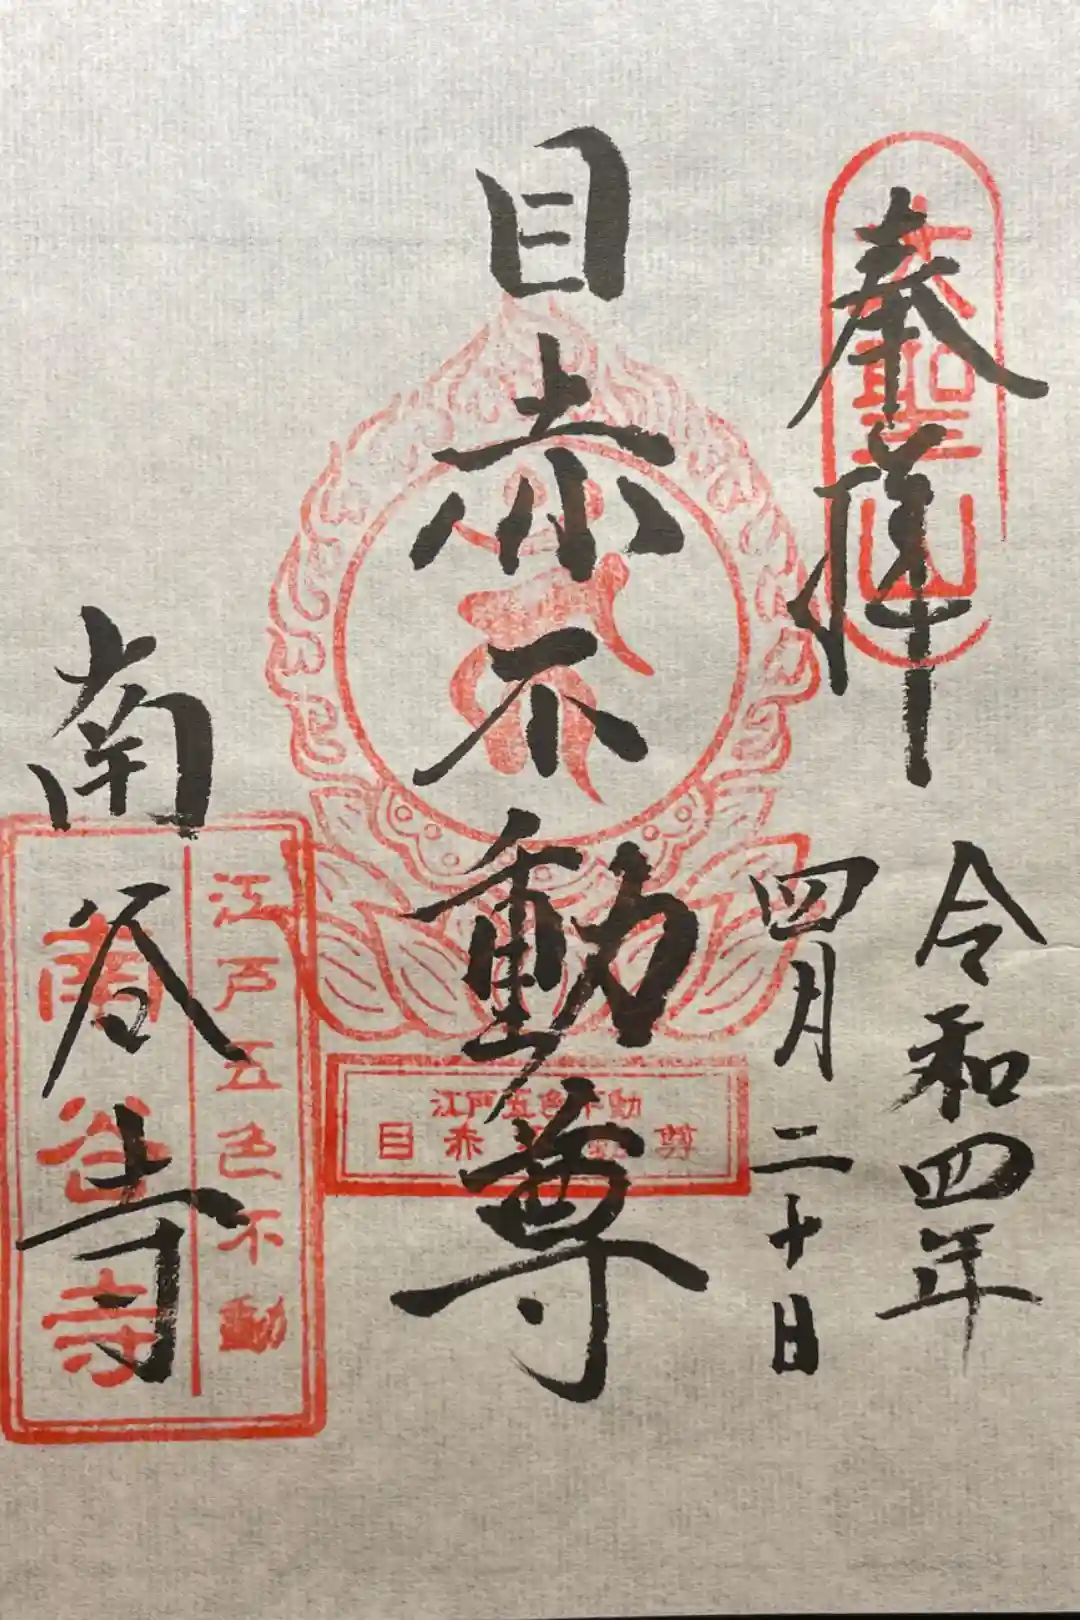 奉拝
大聖山
令和四年
四月二十日
目赤不動尊
江戸五色不動
目赤不動尊
南谷寺
江戸五色不動
南谷寺